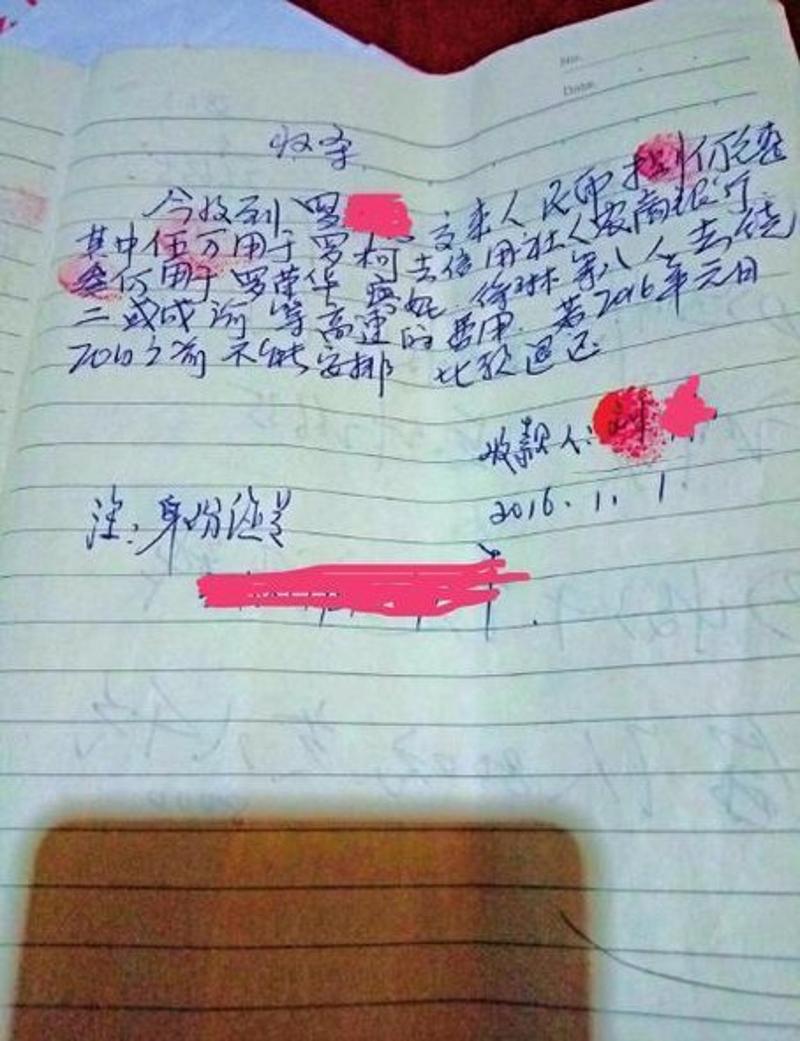 No.
Date.
收条
今收到 罗 交来人民币捌仟元整
其中伍万用于罗柯去信用社人农商银行
叁仟用于罗荣华 徐琳等八人去绕
二或成渝等高速的费用. 若2016年元日
20日之前不能安排 比款退还
收款人: 刘
2016.1.1
注: 身份证号